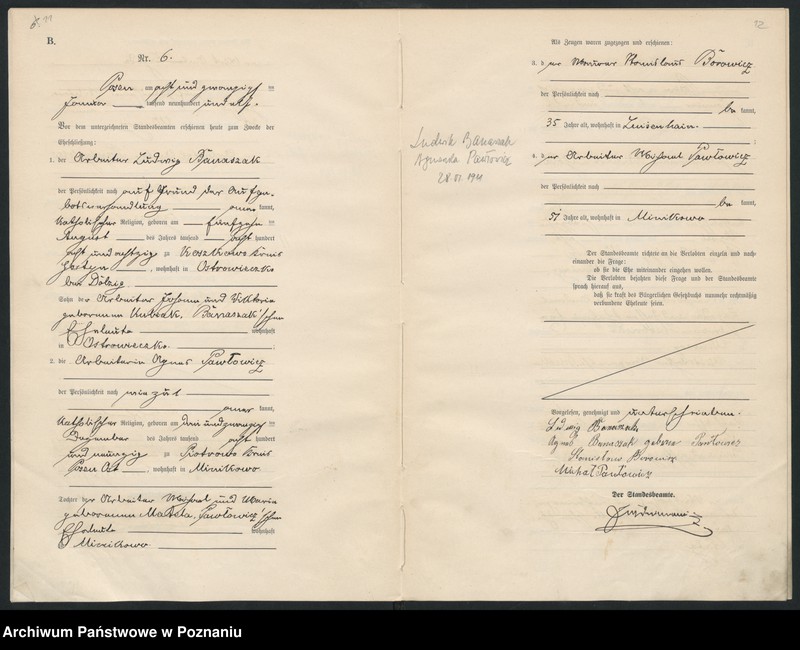 11
B.
Nr. 6.
Posen am acht und zwanzigsten
Januar tausend neunhundert und elf.
Vor dem unterzeichneten Standesbeamten erschienen heute zum Zwecke der
Eheschließung:
1. der Arbeiter Ludwig Banaszak
der Persönlichkeit nach auf Grund der Aufge-
botsverhandlung aner kannt,
katholischer Religion, geboren am fünfzehn
August des Jahres tausend acht hundert
acht und achtzig zu Koszkowo Kreis
Gostyn, wohnhaft in Ostrowieczko
bei Dolzig.
Sohn der Arbeiter Johann und Viktoria
geborenen Kubiak, Banaszak'schen
Eheleute wohnhaft
in Ostrowieczko.
2. die Arbeiterin Agnes Pawłowicz
der Persönlichkeit nach wie zu 1
aner kannt,
katholischer Religion, geboren am
Dezember des Jahres tausend acht hundert
und neunzig zu Piotrowo Kreis
Posen Ost, wohnhaft in Minikowo
Tochter der Arbeiter Michael und Maria
geborenen Matela, Pawłowicz'schen
Eheleute wohnhaft
Minikowo
12
Ludwik Banaszak
Agnieszka Pawłowicz
28.01.1911
Als Zeugen waren zugezogen und erschienen:
3. der Maurer Stanislaus Borowicz
der Persönlichkeit nach
be kannt,
35 Jahre alt, wohnhaft in Luisenhain
4. der Arbeiter Michael Pawłowicz
der Persönlichkeit nach
be kannt,
51 Jahre alt, wohnhaft in Minikowo
Der Standesbeamte richtete an die Verlobten einzeln und nach-
einander die Frage:
ob sie die Ehe miteinander eingehen wollen.
Die Verlobten bejahten diese Frage und der Standesbeamte
sprach hierauf aus,
daß sie kraft des Bürgerlichen Gesetzbuchs nunmehr rechtmäßig
verbundene Eheleute seien.
Vorgelesen, genehmigt und unterschrieben.
Ludwig Banaszak
Agnes Banaszak geborene Pawłowicz
Stanisław Borowicz
Michał Pawłowicz
Der Standesbeamte.
Archiwum Państwowe w Poznaniu